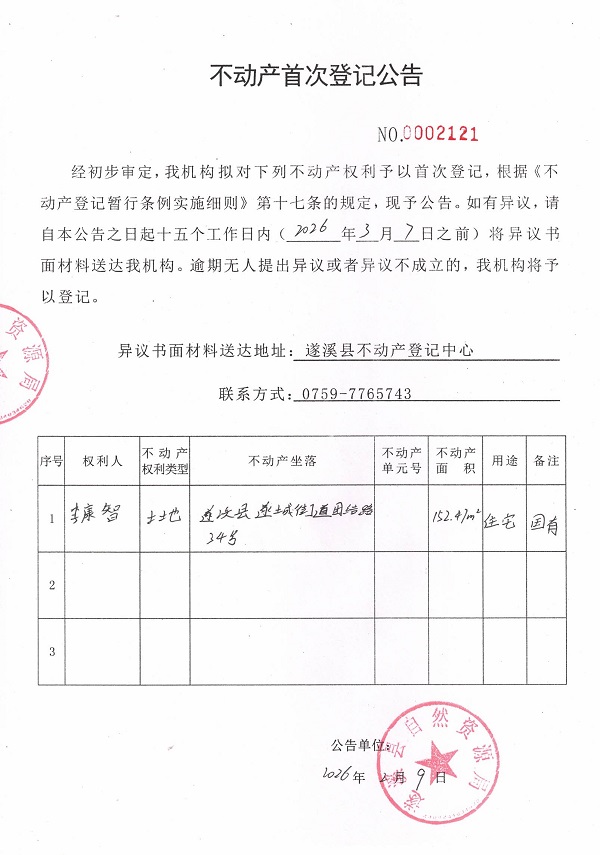 不动产首次登记公告
NO.0002121
经初步审定，我机构拟对下列不动产权利予以首次登记，根据《不
动产登记暂行条例实施细则》第十七条的规定，现予公告。如有异议，请
自本公告之日起十五个工作日内（2026年3月7日之前）将异议书
面材料送达我机构。逾期无人提出异议或者异议不成立的，我机构将予
以登记。
资源局
异议书面材料送达地址：遂溪县不动产登记中心
联系方式：0759-7765743
序号 权利人 不动产权利类型 不动产坐落 不动产单元号 不动产面积 用途 备注
1 李康智 土地 遂溪县遂城街道团结路 152.47m² 住宅 国有
34号
2
3
遂溪县自然资源局
公告单位：
2026年2月9日